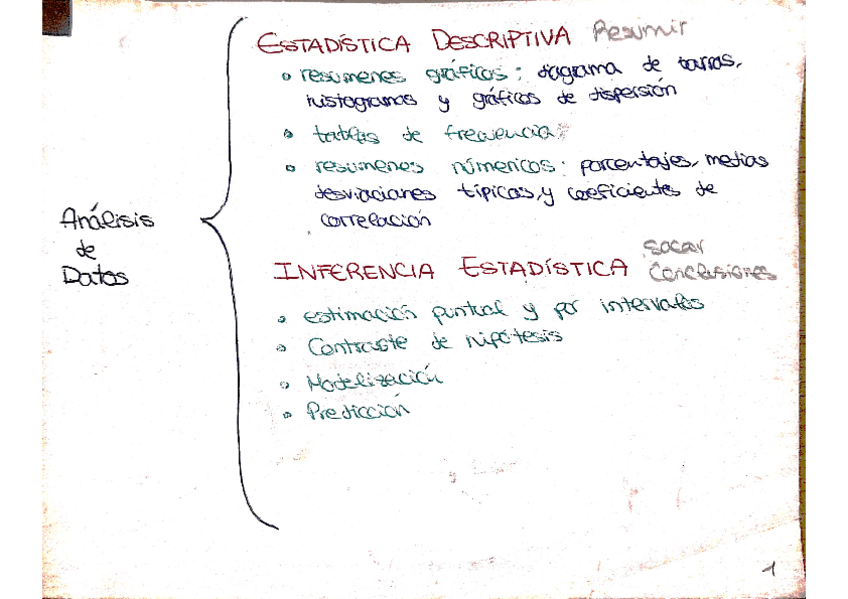 ESTADÍSTICA DESCRIPTIVA Resumir
• resúmenes gráficos: diagrama de barras,
histogramas y gráficos de dispersión
• tablas de frecuencia
• resúmenes númericos: porcentajes, medias
desviaciones típicas, y coeficientes de
correlación
Análisis
de
Datos
INFERENCIA ESTADÍSTICA sacar
conclusiones
• estimación puntual y por intervalos
• Contraste de hipótesis
• Modelización
• Predicción
1